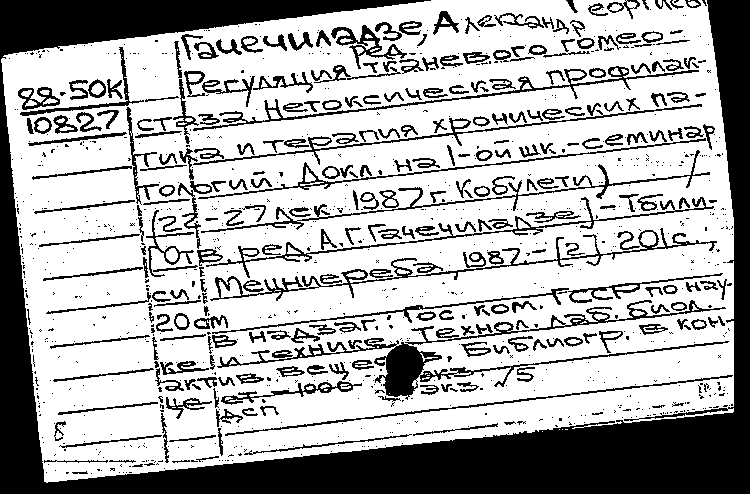 Гачечиладзе, Александр Георгиев
ред.
88-50К
10827
Регуляция тканевого гомео-
стаза. Нетоксическая профилак-
тика и терапия хронических па-
тологий: Докл. на 1-ой шк.-семинар
(22-27 дек. 1987 г. Кобулети) /
[Отв. ред. А.Г. Гачечиладзе]. - Тбили-
си: Мецниереба, 1987. - [2], 201 с.;
20 cm
В надзаг.: Гос. ком. ГССР по нау-
ке и технике. Технол. лаб. биол.
актив. веществ. Библиогр. в кон-
це ст. - 1000 экз.
ДСП экз. √5
8